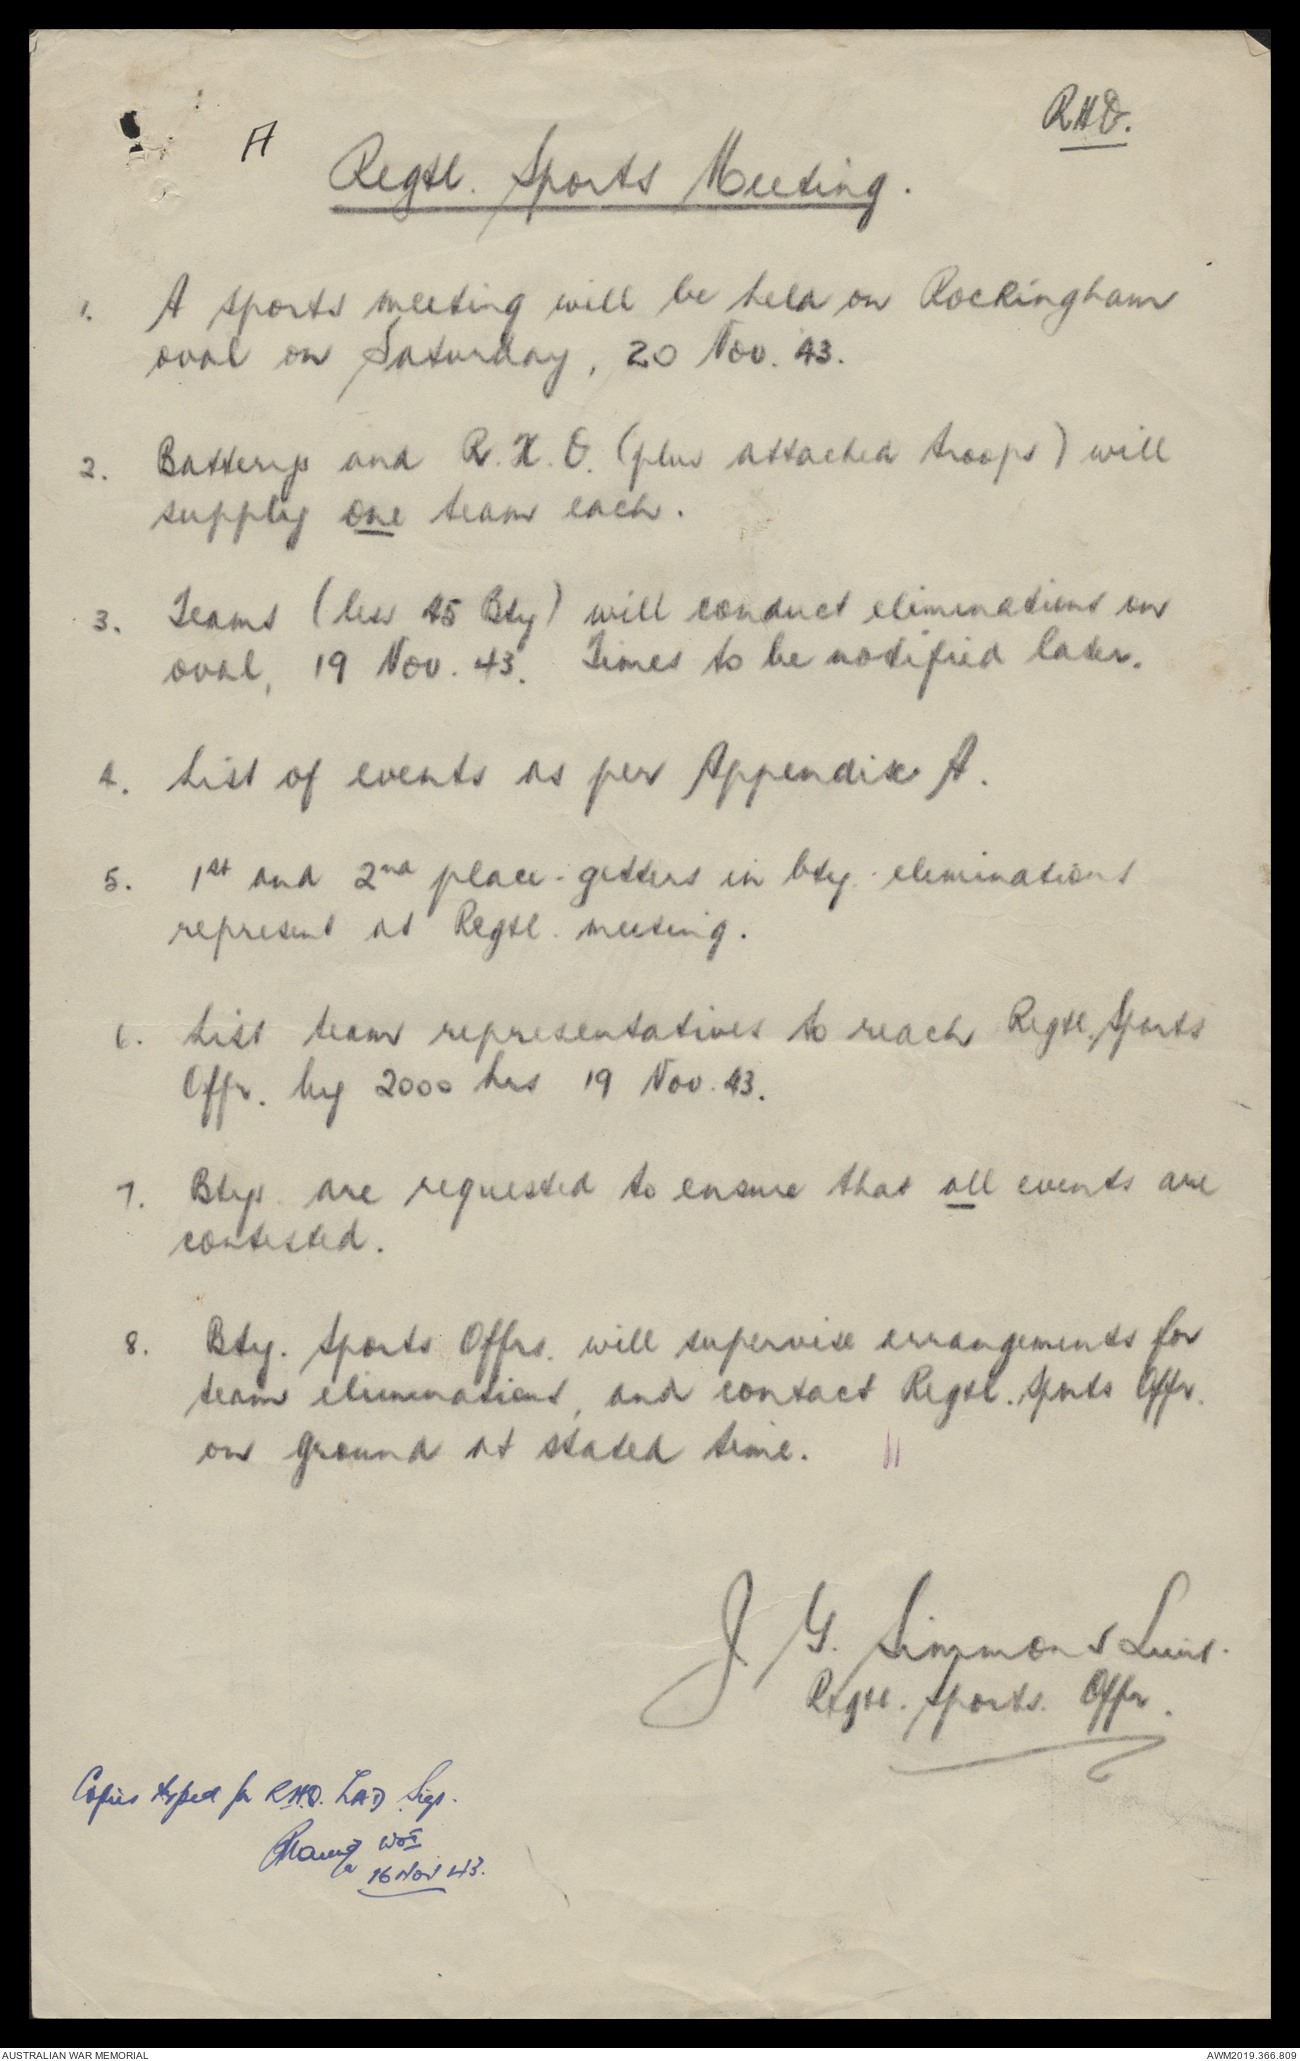 RHQ.
A
Regtl. Sports Meeting.
1. A sports meeting will be held on Rockingham
oval on Saturday, 20 Nov. 43.
2. Batterys and R.H.Q. (plus attached troops) will
supply one team each.
3. Teams (less 45 Bty) will conduct eliminations on
oval, 19 Nov. 43. Times to be notified later.
4. List of events as per Appendix A.
5. 1st and 2nd place-getters in bty. eliminations
represent at Regtl. meeting.
6. List team representatives to reach Regtl. Sports
Offr. by 2000 hrs 19 Nov. 43.
7. Btys. are requested to ensure that all events are
contested.
8. Bty. Sports Offrs. will supervise arrangements for
team eliminations, and contact Regtl. Sports Offr.
on ground at stated time.
J. G. Simmons Lieut.
Regtl. Sports. Offr.
Copies typed for RHQ. LAD Sigs.
16 Nov 43.
AUSTRALIAN WAR MEMORIAL
AWM2019.366.809